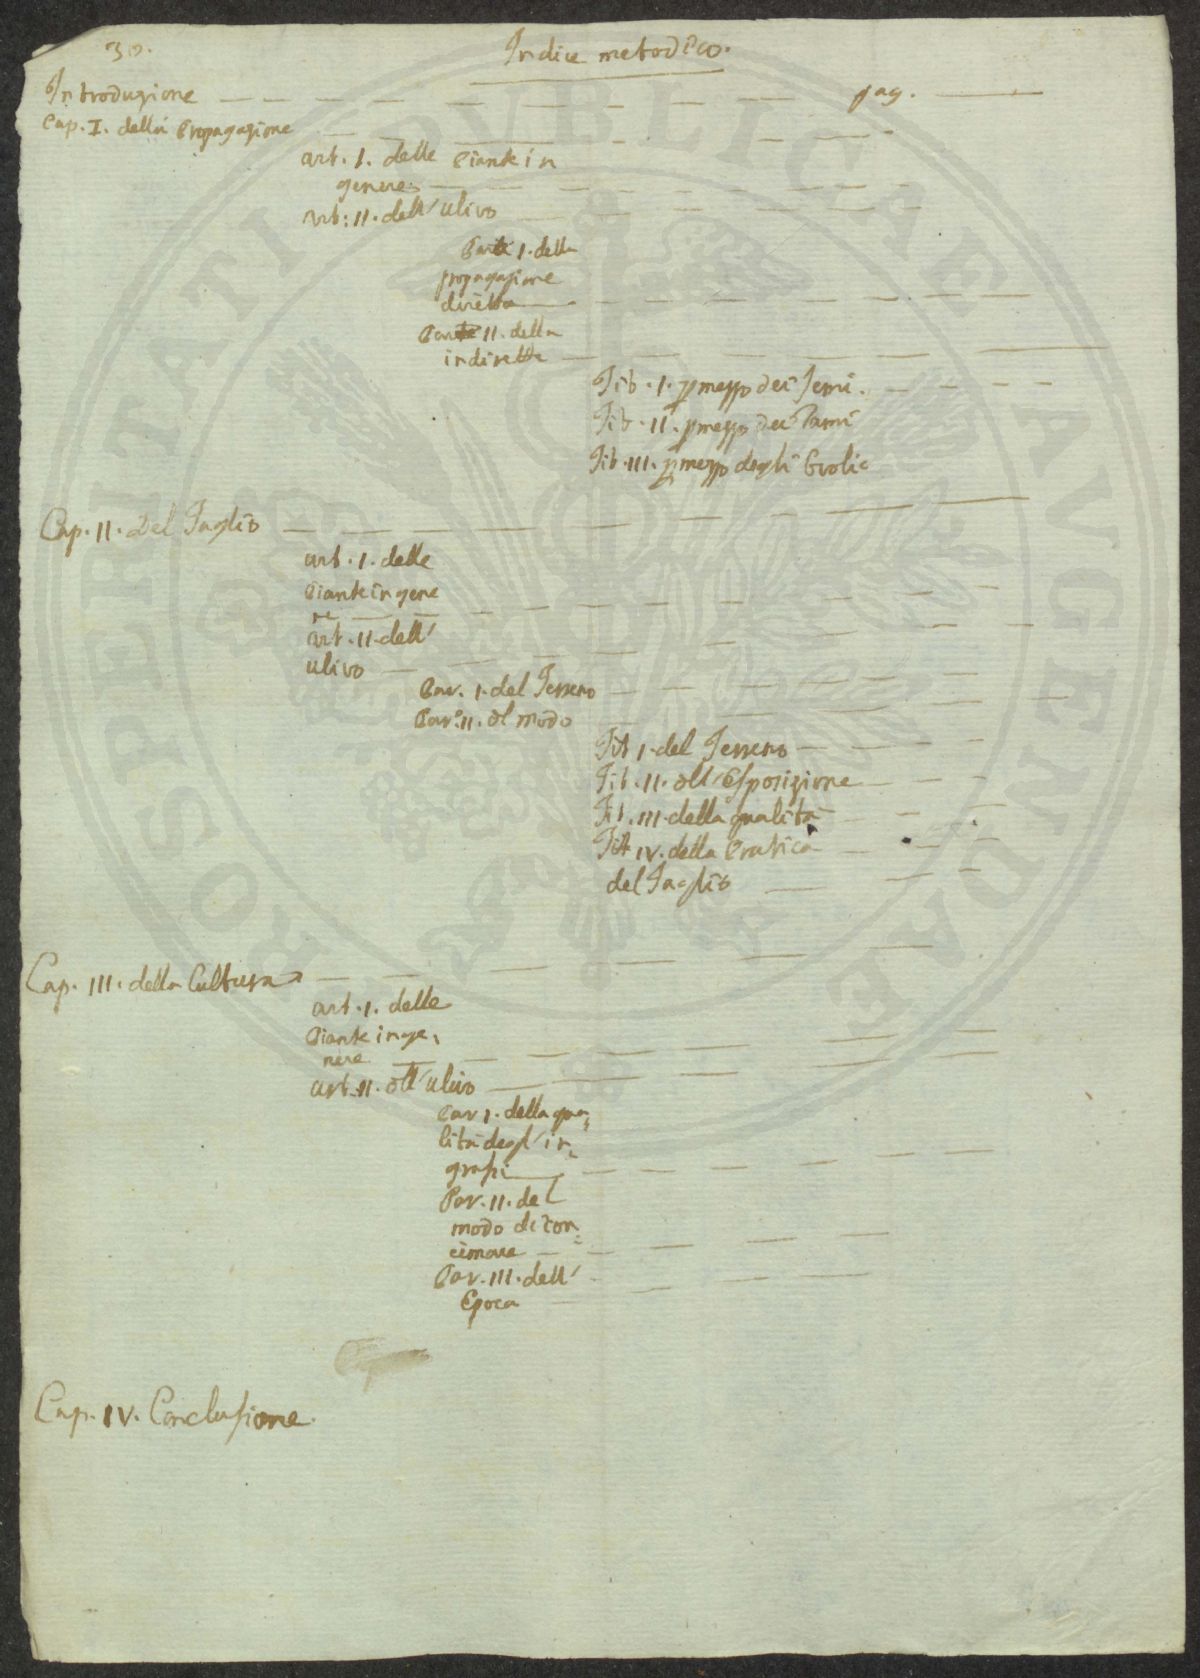 30.
Indice metodico.
Introduzione pag.
Cap. I. della Propagazione
art. I. delle Piante in
genere
art. II. dell'ulivo
Part I. della
propagazione
diretta
Part II. della
indiretta
Tit. I. p mezzo dei Semi.
Tit. II. p mezzo dei Rami
Tit. III. p mezzo degli Ovoli
Cap. II. Del Taglio
art. I. delle
Piante in gene
re
art. II. dell'
ulivo
Par. I. del Terreno
Par. II. del modo
Tit I. del Terreno
Tit. II. dell'Esposizione
Tit. III. della qualità
Tit IV. della Pratica
del Taglio
Cap. III. della Cultura
art. I. delle
Piante in ge,
nere
art. II. dell'ulivo
Par I. della qua=
lità degl'in=
grassi
Par. II. del
modo di con=
cimare
Par. III. dell'
Epoca
Cap. IV. Conclusione.
SOSPITATI PVBLICAE AVGENDAE